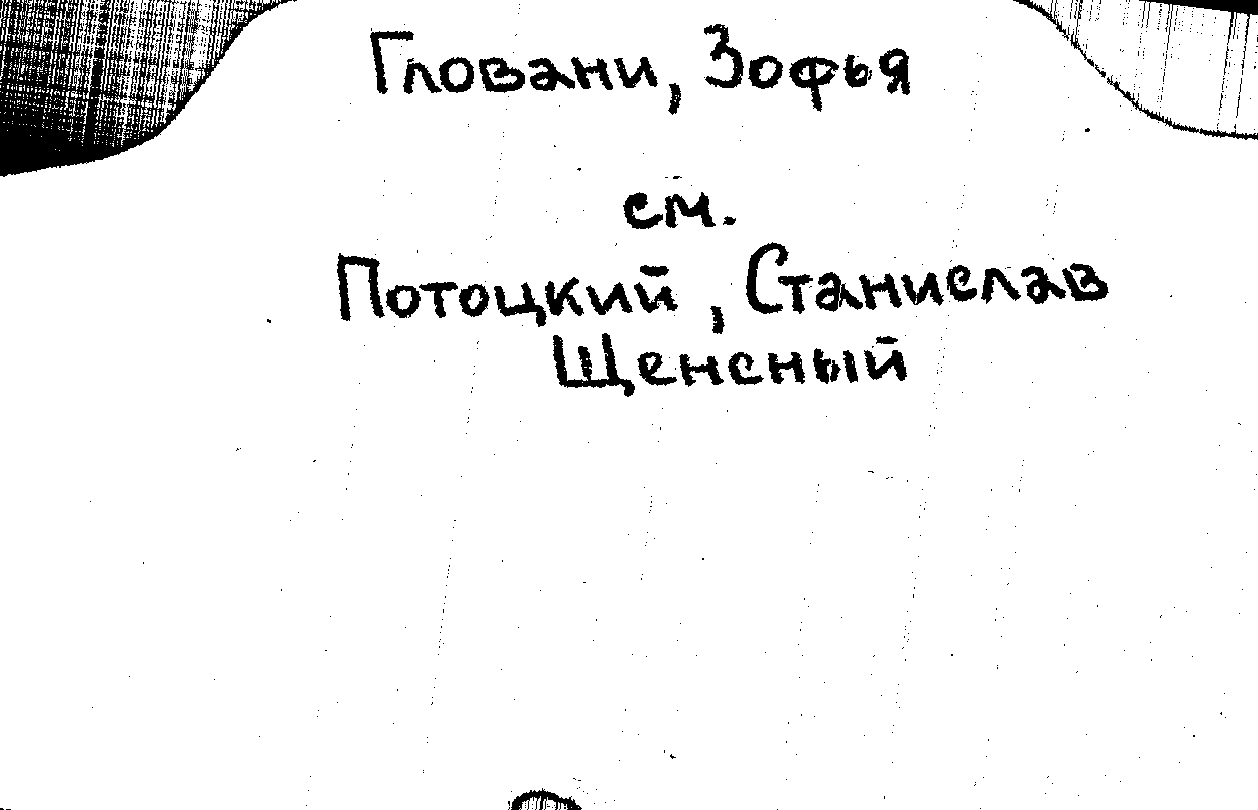 Гловани, Зофья
см.
Потоцкий, Станислав
Щенсный